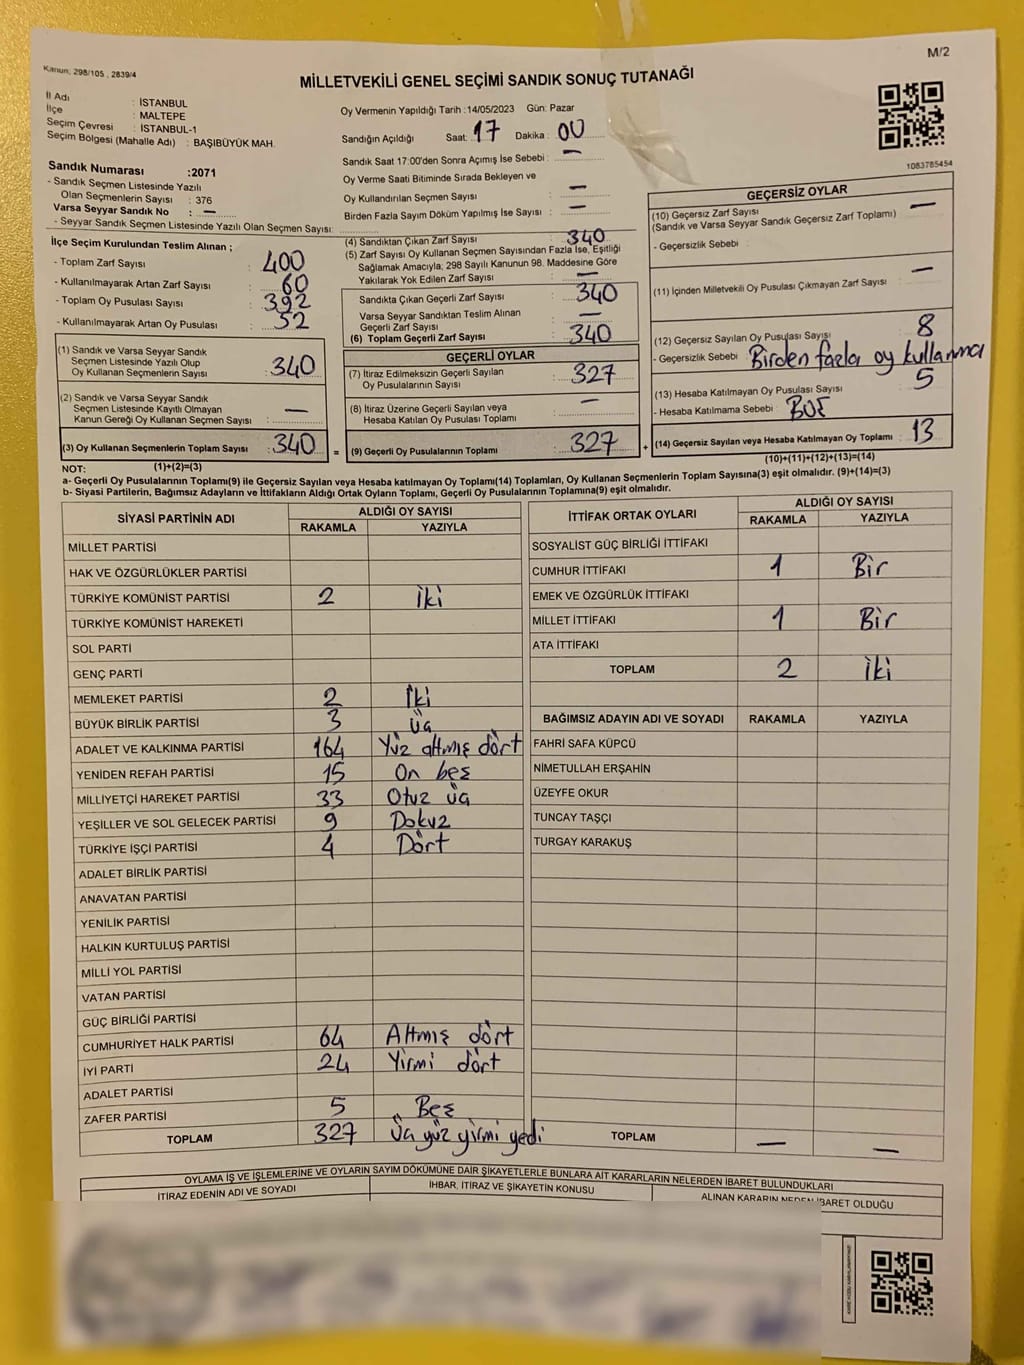 M/2
Kanun: 298/105 , 2839/4
MİLLETVEKİLİ GENEL SEÇİMİ SANDIK SONUÇ TUTANAĞI
İl Adı : İSTANBUL
İlçe : MALTEPE
Seçim Çevresi : İSTANBUL-1
Seçim Bölgesi (Mahalle Adı) : BAŞIBÜYÜK MAH.
Oy Vermenin Yapıldığı Tarih :14/05/2023 Gün: Pazar
Sandığın Açıldığı Saat: 17 Dakika : 00
Sandık Saat 17:00'den Sonra Açımış İse Sebebi : —
Oy Verme Saati Bitiminde Sırada Bekleyen ve
Oy Kullandırılan Seçmen Sayısı : —
Birden Fazla Sayım Döküm Yapılmış İse Sayısı : —
1083785454
Sandık Numarası :2071
- Sandık Seçmen Listesinde Yazılı
Olan Seçmenlerin Sayısı : 376
Varsa Seyyar Sandık No : —
- Seyyar Sandık Seçmen Listesinde Yazılı Olan Seçmen Sayısı:
İlçe Seçim Kurulundan Teslim Alınan ;
- Toplam Zarf Sayısı : 400
- Kullanılmayarak Artan Zarf Sayısı : 60
- Toplam Oy Pusulası Sayısı : 392
- Kullanılmayarak Artan Oy Pusulası : 52
(1) Sandık ve Varsa Seyyar Sandık
Seçmen Listesinde Yazılı Olup
Oy Kullanan Seçmenlerin Sayısı : 340
(2) Sandık ve Varsa Seyyar Sandık
Seçmen Listesinde Kayıtlı Olmayan
Kanun Gereği Oy Kullanan Seçmen Sayısı : —
(3) Oy Kullanan Seçmenlerin Toplam Sayısı : 340 =
(1)+(2)=(3)
(4) Sandıktan Çıkan Zarf Sayısı : 340
(5) Zarf Sayısı Oy Kullanan Seçmen Sayısından Fazla İse, Eşitliği
Sağlamak Amacıyla, 298 Sayılı Kanunun 98. Maddesine Göre
Yakılarak Yok Edilen Zarf Sayısı : —
Sandıkta Çıkan Geçerli Zarf Sayısı : 340
Varsa Seyyar Sandıktan Teslim Alınan
Geçerli Zarf Sayısı : —
(6) Toplam Geçerli Zarf Sayısı : 340
GEÇERLİ OYLAR
(7) İtiraz Edilmeksizin Geçerli Sayılan
Oy Pusulalarının Sayısı : 327
(8) İtiraz Üzerine Geçerli Sayılan veya
Hesaba Katılan Oy Pusulası Toplamı : —
(9) Geçerli Oy Pusulalarının Toplamı : 327 +
GEÇERSİZ OYLAR
(10) Geçersiz Zarf Sayısı : —
(Sandık ve Varsa Seyyar Sandık Geçersiz Zarf Toplamı)
- Geçersizlik Sebebi :
(11) İçinden Milletvekili Oy Pusulası Çıkmayan Zarf Sayısı : —
(12) Geçersiz Sayılan Oy Pusulası Sayısı : 8
- Geçersizlik Sebebi : Birden fazla oy kullanma
(13) Hesaba Katılmayan Oy Pusulası Sayısı : 5
- Hesaba Katılmama Sebebi : BOŞ
(14) Geçersiz Sayılan veya Hesaba Katılmayan Oy Toplamı : 13
(10)+(11)+(12)+(13)=(14)
NOT:
a- Geçerli Oy Pusulalarının Toplamı(9) ile Geçersiz Sayılan veya Hesaba katılmayan Oy Toplamı(14) Toplamları, Oy Kullanan Seçmenlerin Toplam Sayısına(3) eşit olmalıdır. (9)+(14)=(3)
b- Siyasi Partilerin, Bağımsız Adayların ve İttifakların Aldığı Ortak Oyların Toplamı, Geçerli Oy Pusulalarının Toplamına(9) eşit olmalıdır.
SİYASİ PARTİNİN ADI ALDIĞI OY SAYISI
RAKAMLA YAZIYLA
MİLLET PARTİSİ
HAK VE ÖZGÜRLÜKLER PARTİSİ
TÜRKİYE KOMÜNİST PARTİSİ 2 İki
TÜRKİYE KOMÜNİST HAREKETİ
SOL PARTİ
GENÇ PARTİ
MEMLEKET PARTİSİ 2 İki
BÜYÜK BİRLİK PARTİSİ 3 Üç
ADALET VE KALKINMA PARTİSİ 164 Yüz altmış dört
YENİDEN REFAH PARTİSİ 15 On beş
MİLLİYETÇİ HAREKET PARTİSİ 33 Otuz üç
YEŞİLLER VE SOL GELECEK PARTİSİ 9 Dokuz
TÜRKİYE İŞÇİ PARTİSİ 4 Dört
ADALET BİRLİK PARTİSİ
ANAVATAN PARTİSİ
YENİLİK PARTİSİ
HALKIN KURTULUŞ PARTİSİ
MİLLİ YOL PARTİSİ
VATAN PARTİSİ
GÜÇ BİRLİĞİ PARTİSİ
CUMHURİYET HALK PARTİSİ 64 Altmış dört
İYİ PARTİ 24 Yirmi dört
ADALET PARTİSİ
ZAFER PARTİSİ 5 Beş
TOPLAM 327 Üç yüz yirmi yedi
İTTİFAK ORTAK OYLARI ALDIĞI OY SAYISI
RAKAMLA YAZIYLA
SOSYALİST GÜÇ BİRLİĞİ İTTİFAKI
CUMHUR İTTİFAKI 1 Bir
EMEK VE ÖZGÜRLÜK İTTİFAKI
MİLLET İTTİFAKI 1 Bir
ATA İTTİFAKI
TOPLAM 2 İki
BAĞIMSIZ ADAYIN ADI VE SOYADI RAKAMLA YAZIYLA
FAHRİ SAFA KÜPCÜ
NİMETULLAH ERŞAHİN
ÜZEYFE OKUR
TUNCAY TAŞÇI
TURGAY KARAKUŞ
TOPLAM — —
OYLAMA İŞ VE İŞLEMLERİNE VE OYLARIN SAYIM DÖKÜMÜNE DAİR ŞİKAYETLERLE BUNLARA AİT KARARLARIN NELERDEN İBARET BULUNDUKLARI
İTİRAZ EDENİN ADI VE SOYADI İHBAR, İTİRAZ VE ŞİKAYETİN KONUSU ALINAN KARARIN NEDEN İBARET OLDUĞU